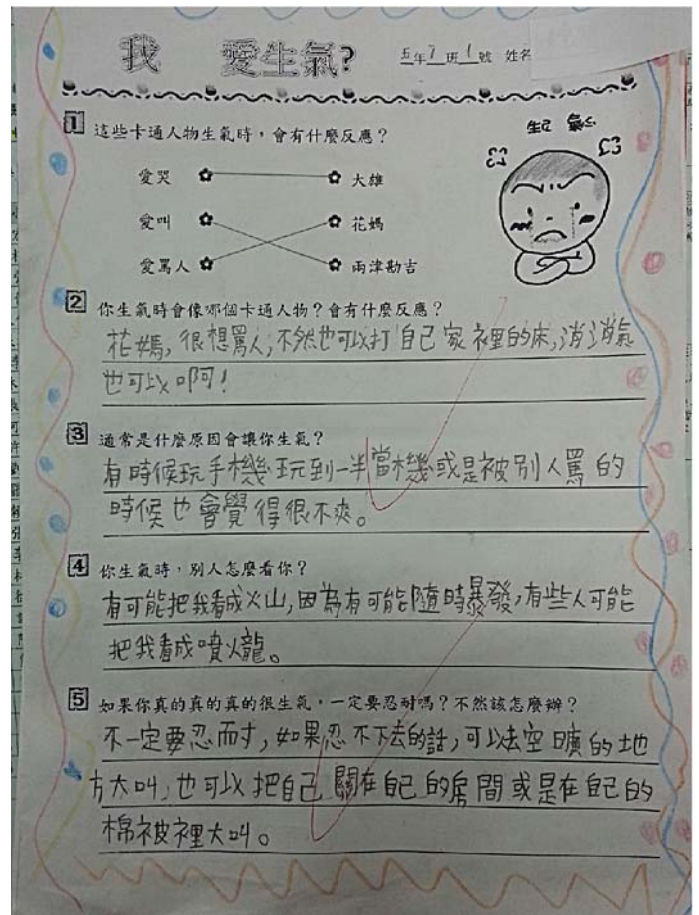 我 愛生氣?
五年7班1號 姓名
1 這些卡通人物生氣時,會有什麼反應?
生氣
愛哭 大雄
愛叫 花媽
愛罵人 兩津勘吉
2 你生氣時會像哪個卡通人物?會有什麼反應?
花媽,很想罵人,不然也可以打自己家裡的床,消消氣
也可以啊!
3 通常是什麼原因會讓你生氣?
有時候玩手機玩到一半當機或是被別人罵的
時候也會覺得很不爽。
4 你生氣時,別人怎麼看你?
有可能把我看成火山,因為有可能隨時暴發,有些人可能
把我看成噴火龍。
5 如果你真的真的真的很生氣,一定要忍耐嗎?不然該怎麼辦?
不一定要忍耐,如果忍不下去的話,可以去空曠的地
方大叫,也可以把自己關在自己的房間或是在自己的
棉被裡大叫。